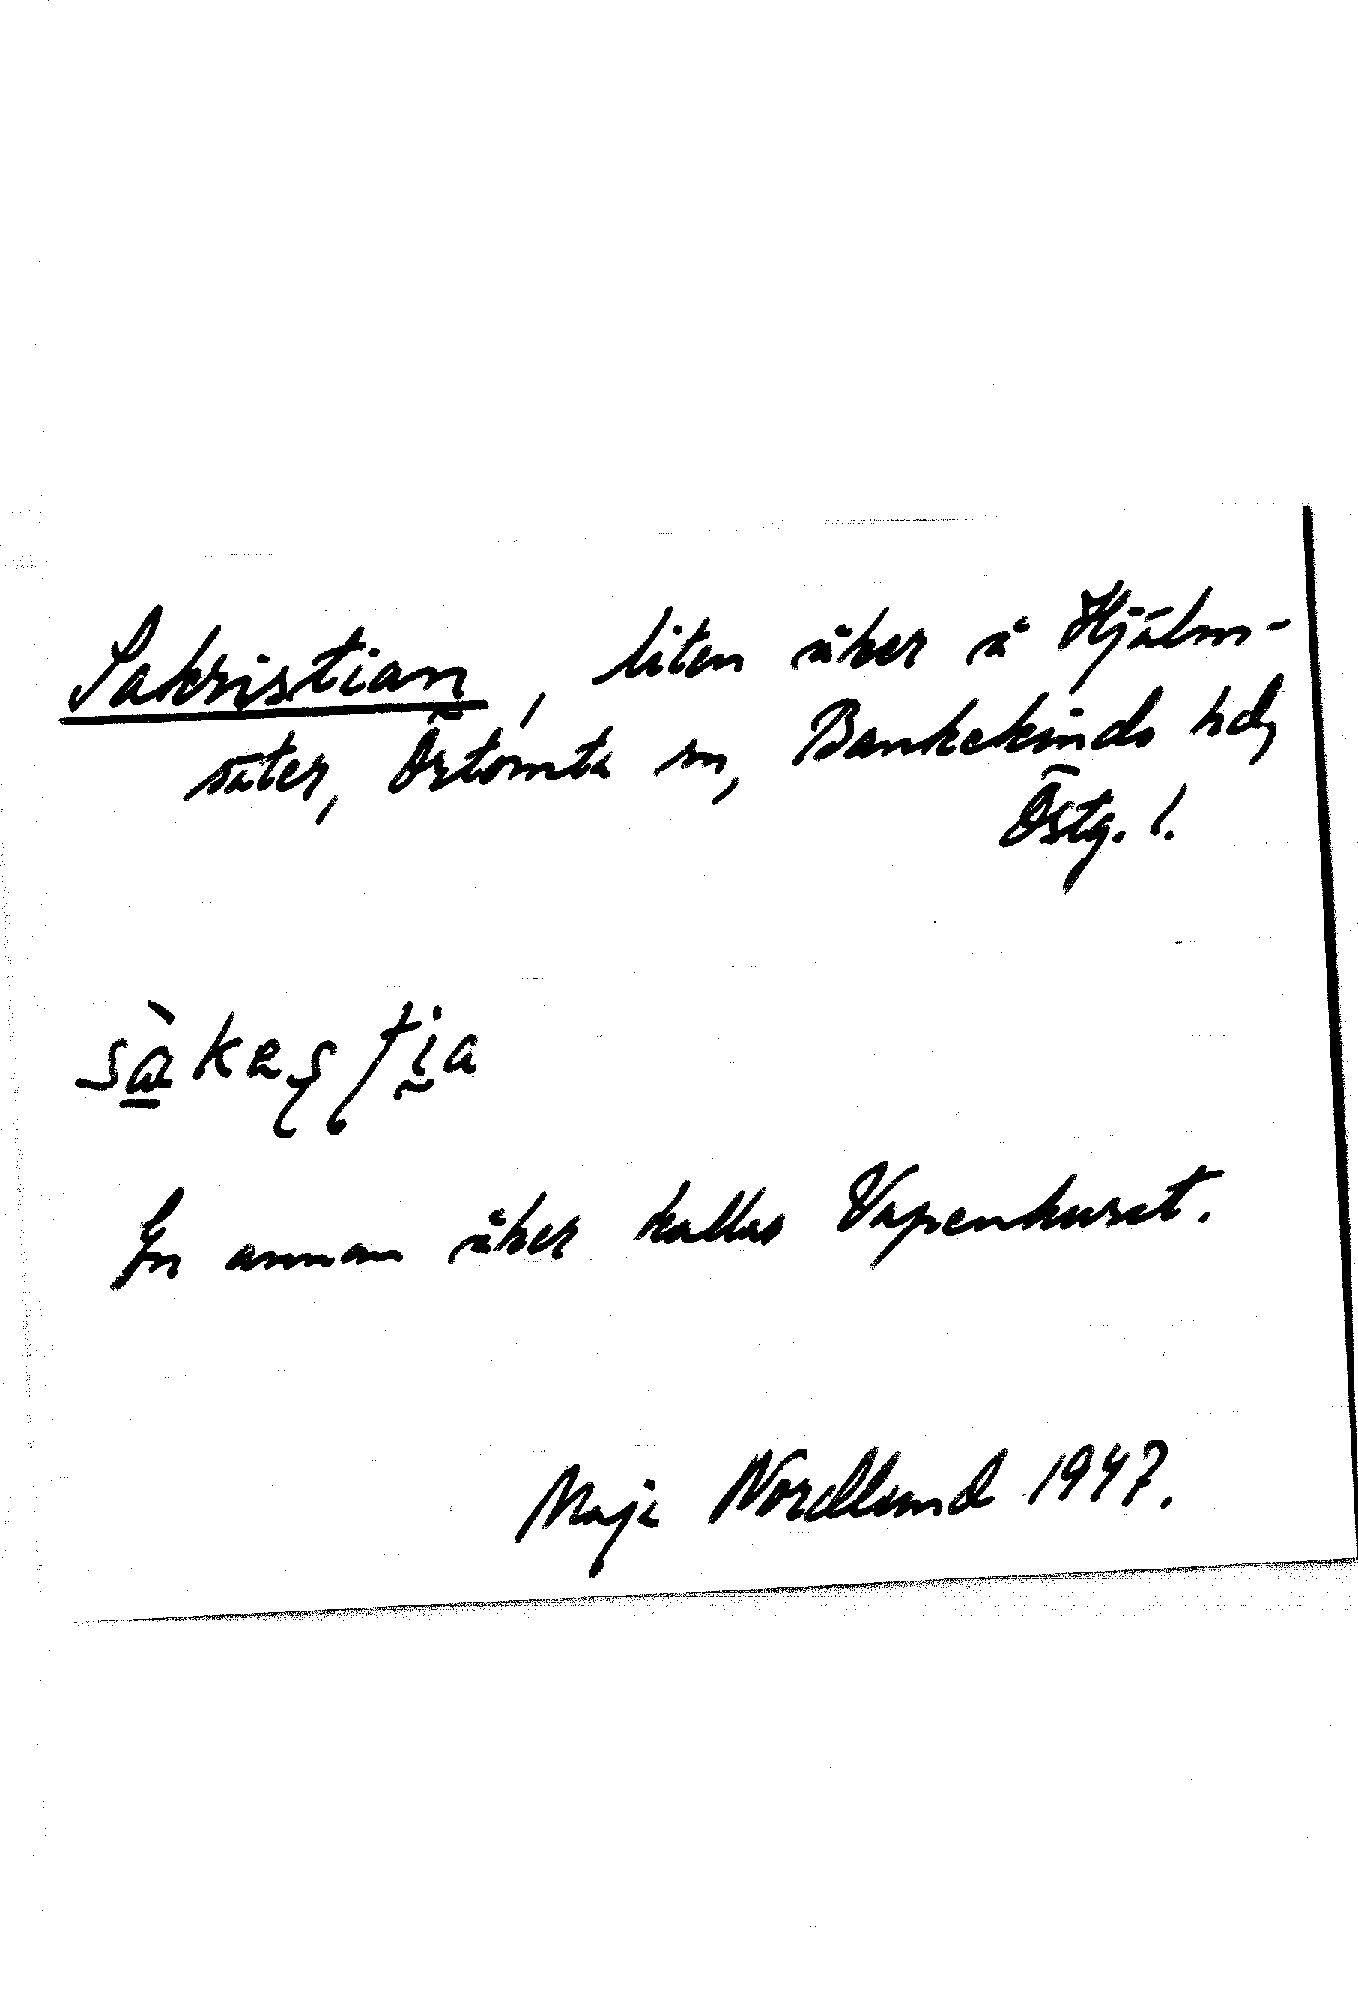 Sakristian, liten åker å Hjälm-
säter, Örtomta sn, Bankekinds hd,
Östg. l.
En annan åker kallas Vapenhuset.
Maja Nordlund 1947.